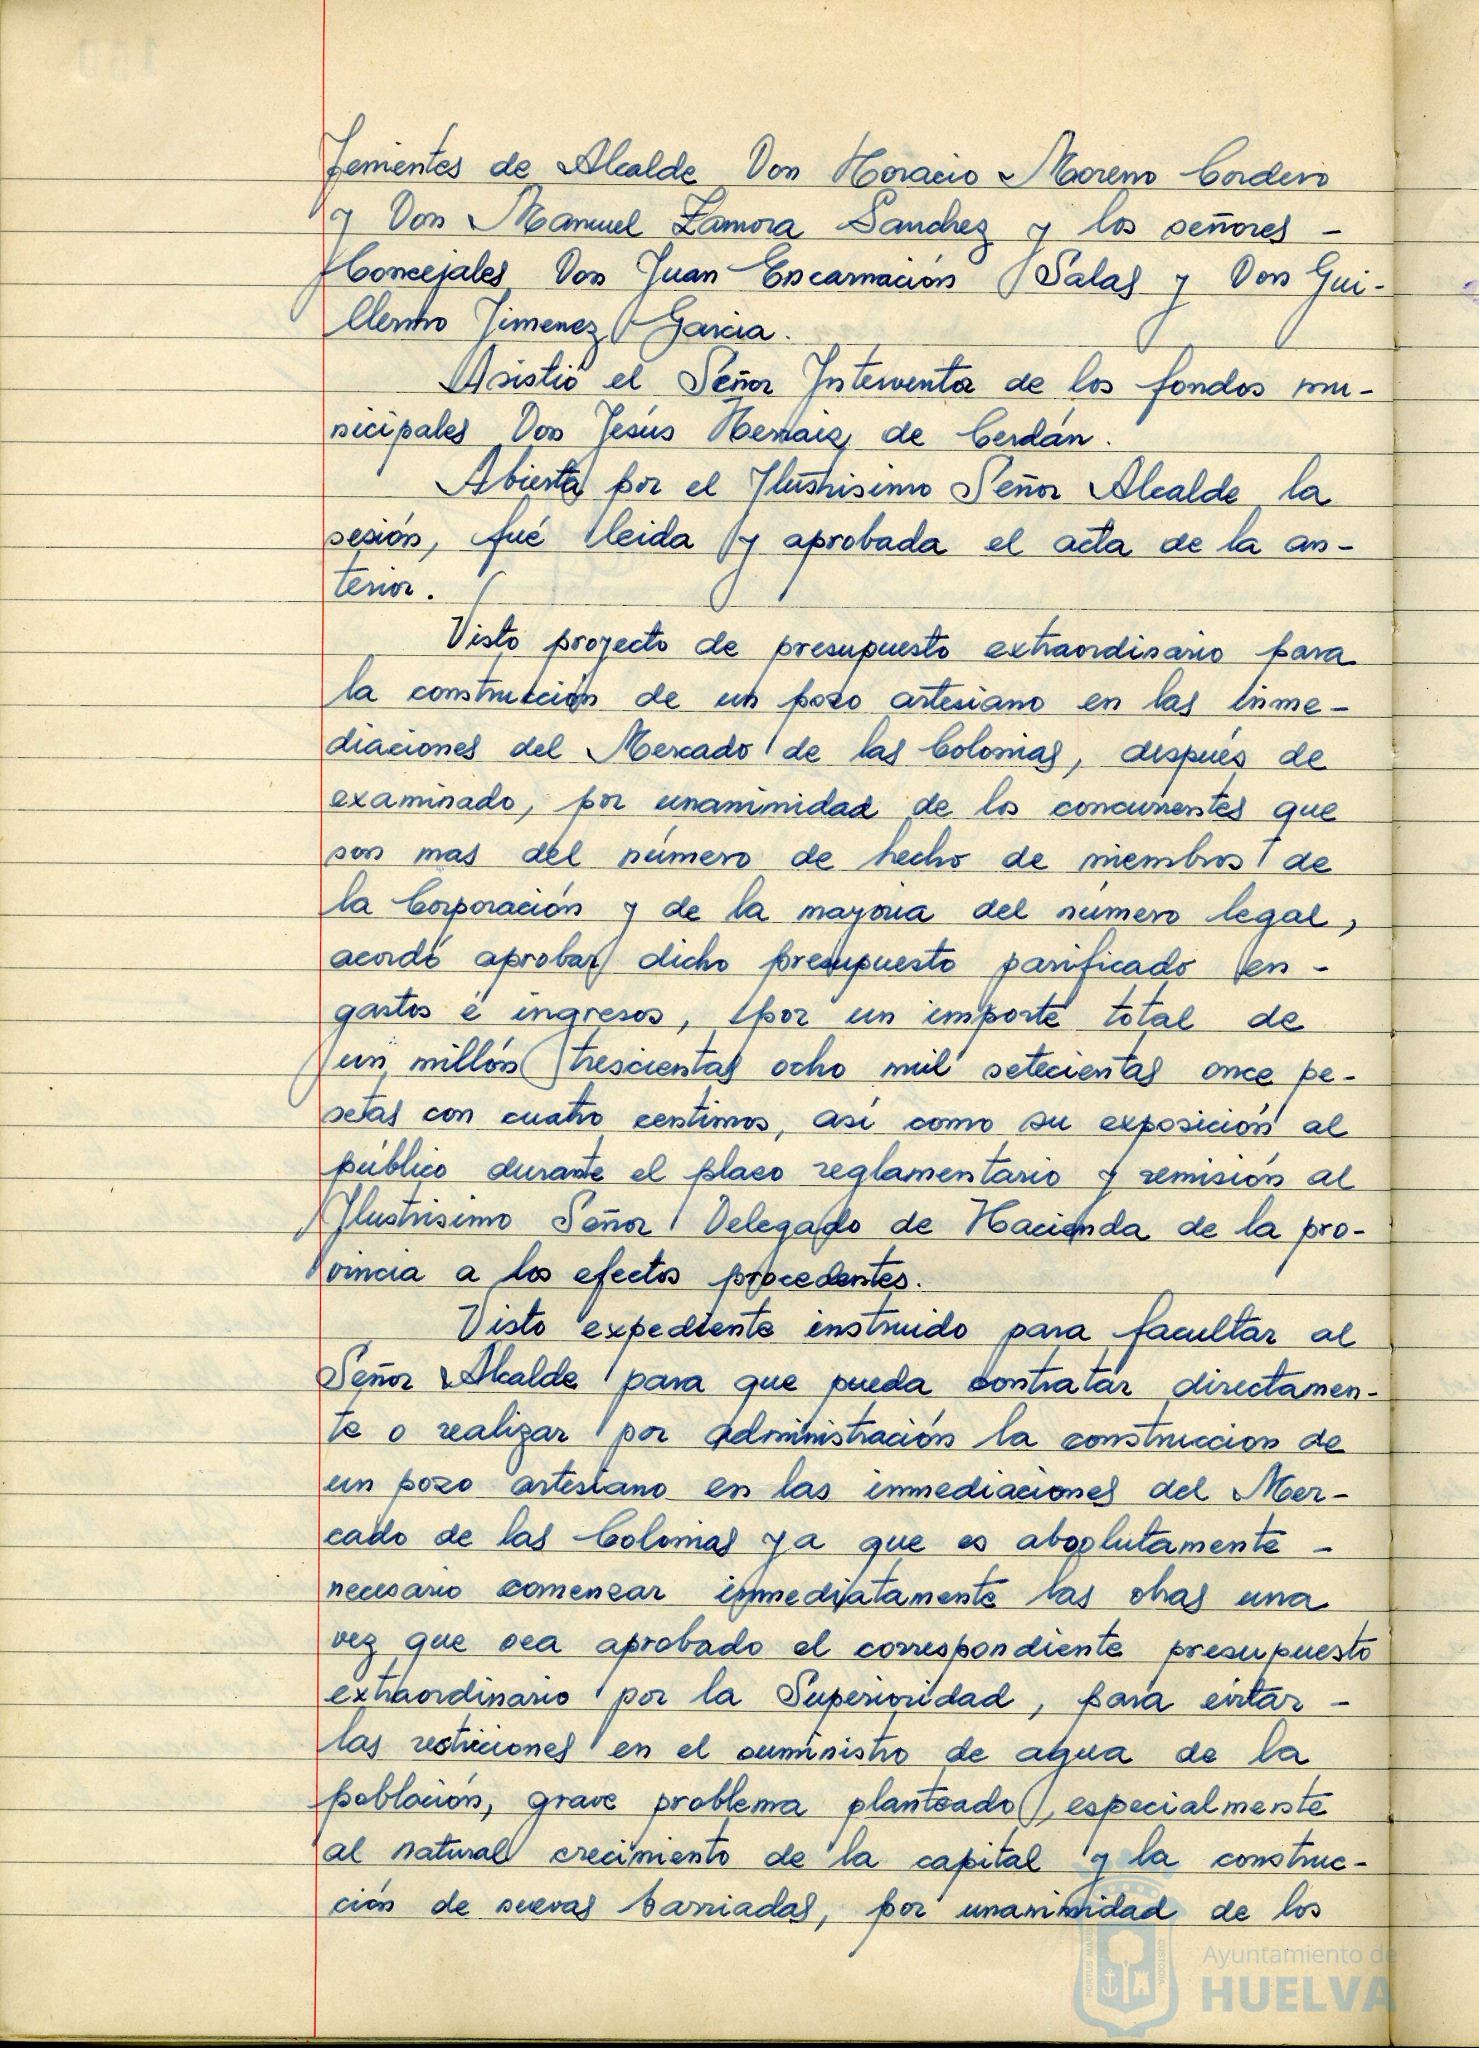 Tenientes de Alcalde Don Horacio Moreno Cordero
y Don Manuel Zamora Sanchez y los señores -
Concejales Don Juan Encarnación Salas y Don Gui-
llermo Jimenez Garcia.
Asistió el Señor Interventor de los fondos mu-
nicipales Don Jesús Herraiz de Cerdán.
Abierta por el Ilustrisimo Señor Alcalde la
sesión, fué leida y aprobada el acta de la an-
terior.
Visto proyecto de presupuesto extraordinario para
la construcción de un pozo artesiano en las inme-
diaciones del Mercado de las Colonias, después de
examinado, por unanimidad de los concurrentes que
son mas del número de hecho de miembros de
la Corporación y de la mayoria del número legal,
acordó aprobar dicho presupuesto panificado en -
gastos é ingresos, por un importe total de
un millón trescientas ocho mil setecientas once pe-
setas con cuatro centimos, así como su exposición al
público durante el plazo reglamentario y remisión al
Ilustrisimo Señor Delegado de Hacienda de la pro-
vincia a los efectos procedentes.
Visto expediente instruido para facultar al
Señor Alcalde para que pueda contratar directamen-
te o realizar por administración la construccion de
un pozo artesiano en las inmediaciones del Mer-
cado de las Colonias ya que es absolutamente -
necesario comenzar inmediatamente las obras una
vez que sea aprobado el correspondiente presupuesto
extraordinario por la Superioridad, para evitar -
las restriciones en el suministro de agua de la
población, grave problema planteado, especialmente
al natural crecimiento de la capital y la construc-
ción de nuevas barriadas, por unanimidad de los
PORTUS MARIS CUSTODIA
Ayuntamiento de
HUELVA